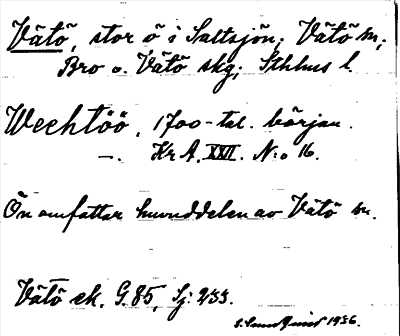 Vätö, stor ö i Saltsjön; Vätö sn;
Bro o. Vätö skg; Sthlms l.
Wechtöö, 1700-tal. början.
—. Kr A. XXII. N:o 16.
Ön omfattar huvuddelen av Vätö sn.
Vätö ek. G. 85, Sj: 233.
1936.